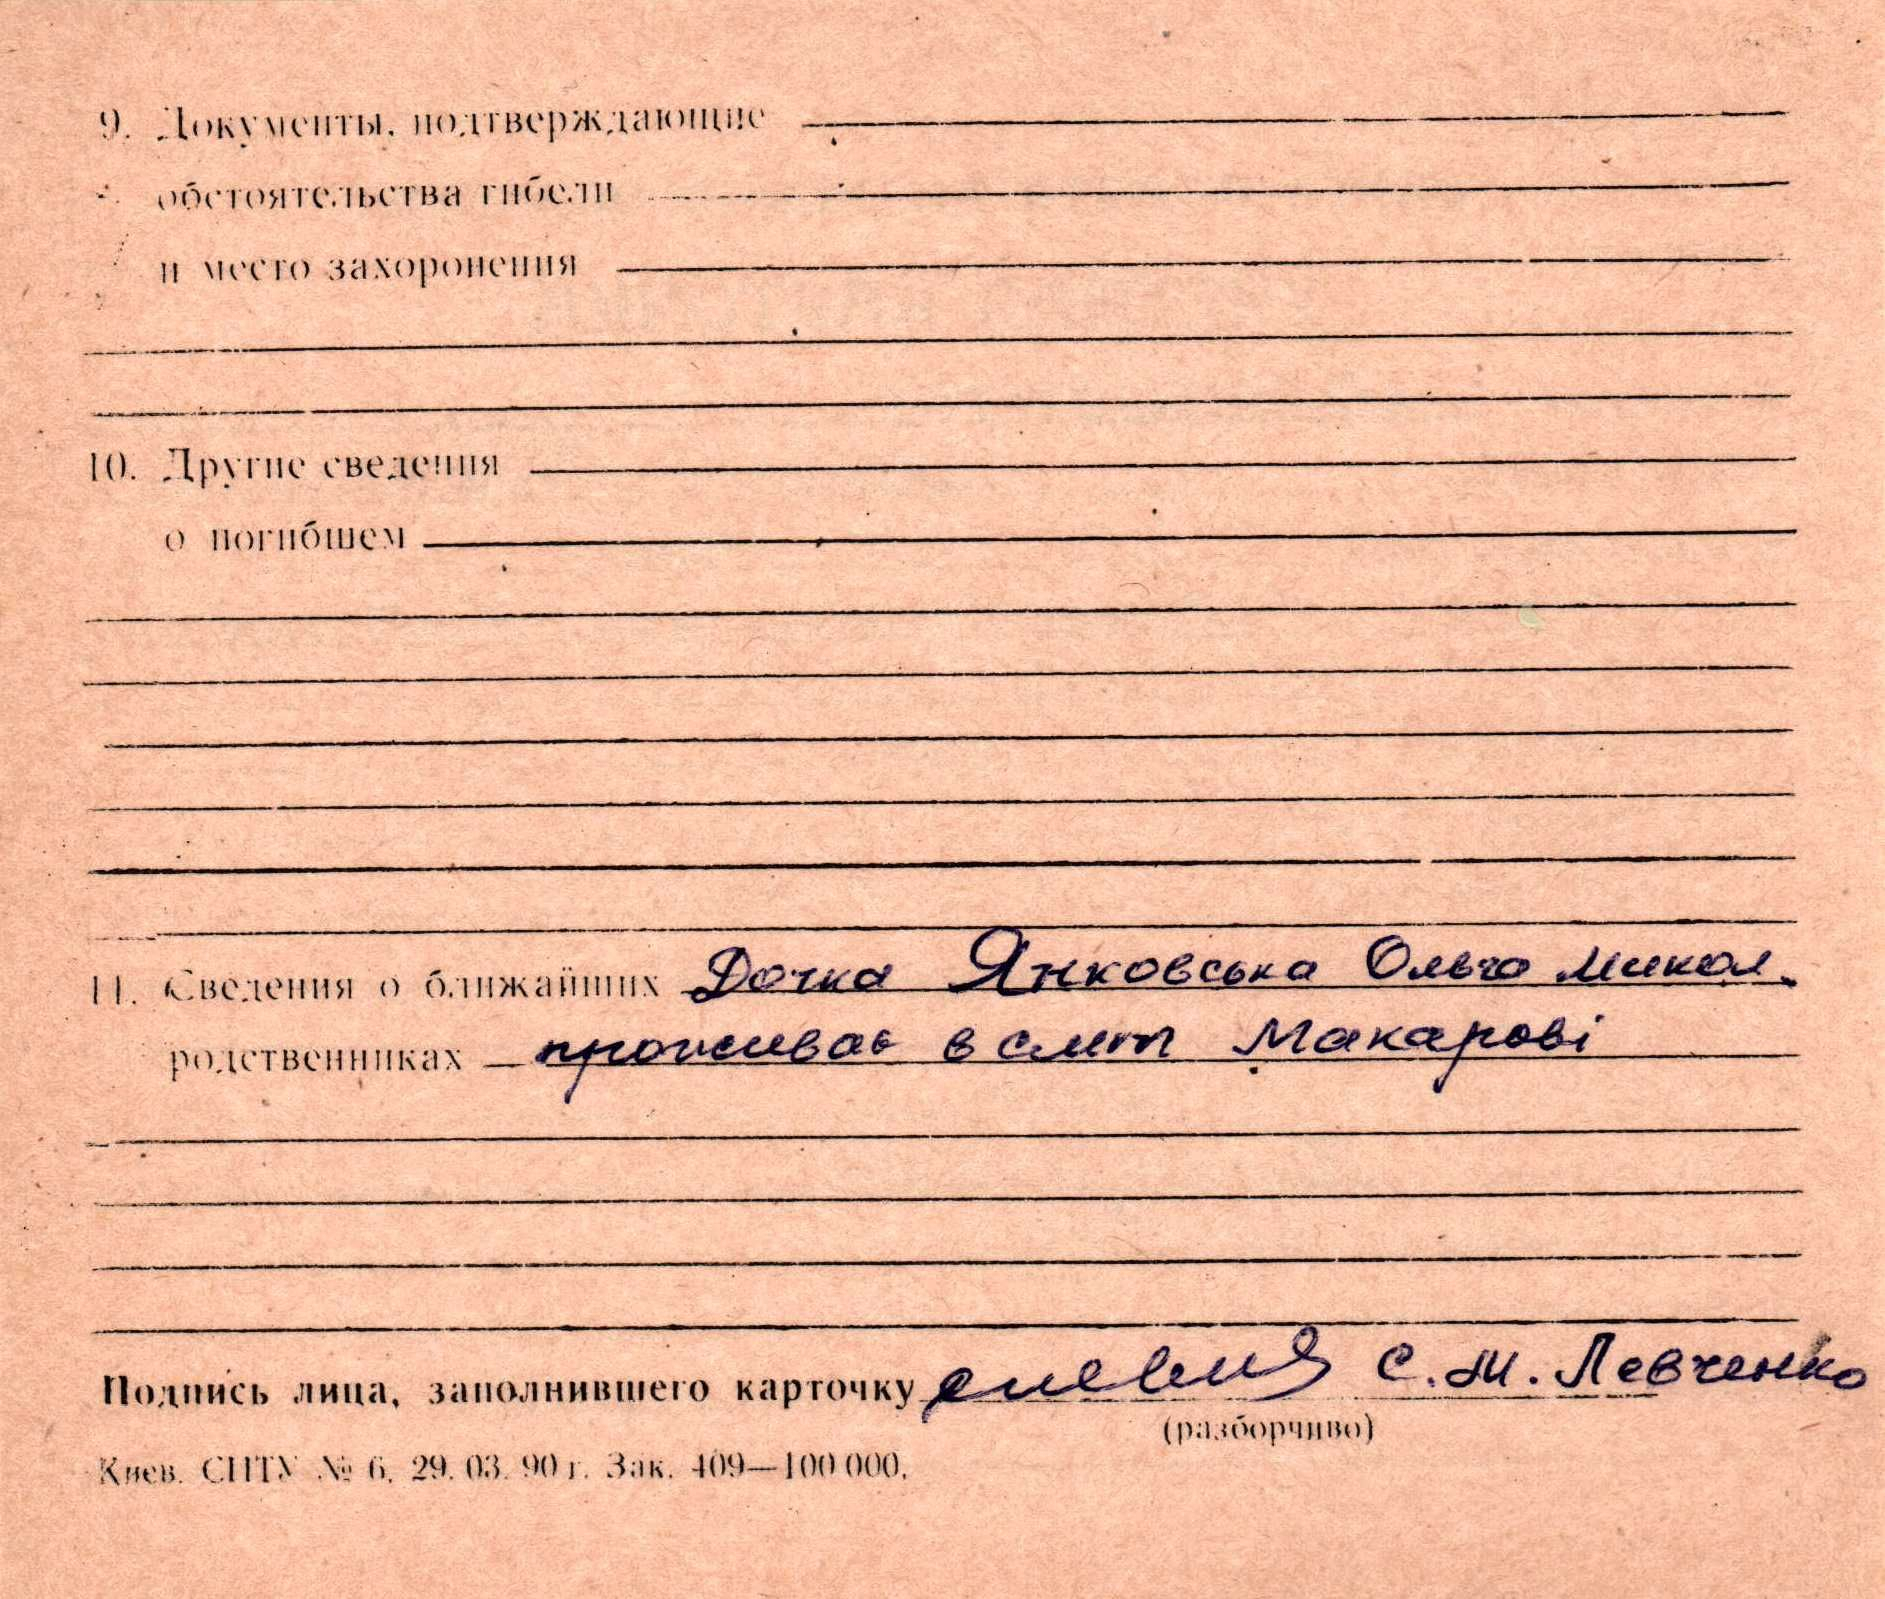 9. Документы, подтверждающие
обстоятельства гибели
и место захоронения
10. Другие сведения
о погибшем
11. Сведения о ближайших Дочка Янковська Ольга Микол.
родственниках проживає в смт Макарові
Подпись лица, заполнившего карточку С. М. Левченко
(разборчиво)
Киев. СПТУ № 6. 29. 03. 90 г. Зак. 409—100 000.